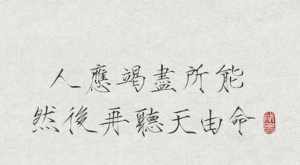 人應竭盡所能
然後再聽天由命